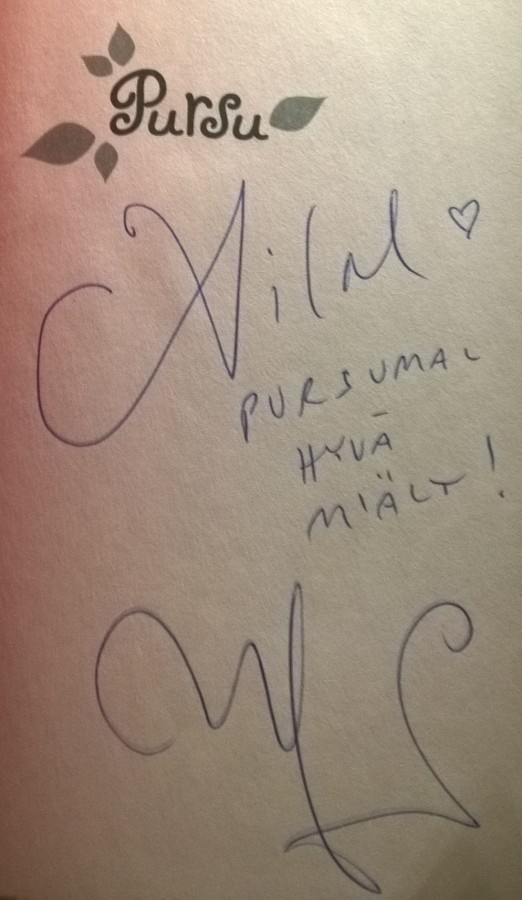 Pursu
PURSUMAL
HYVÄ
MIÄLT!